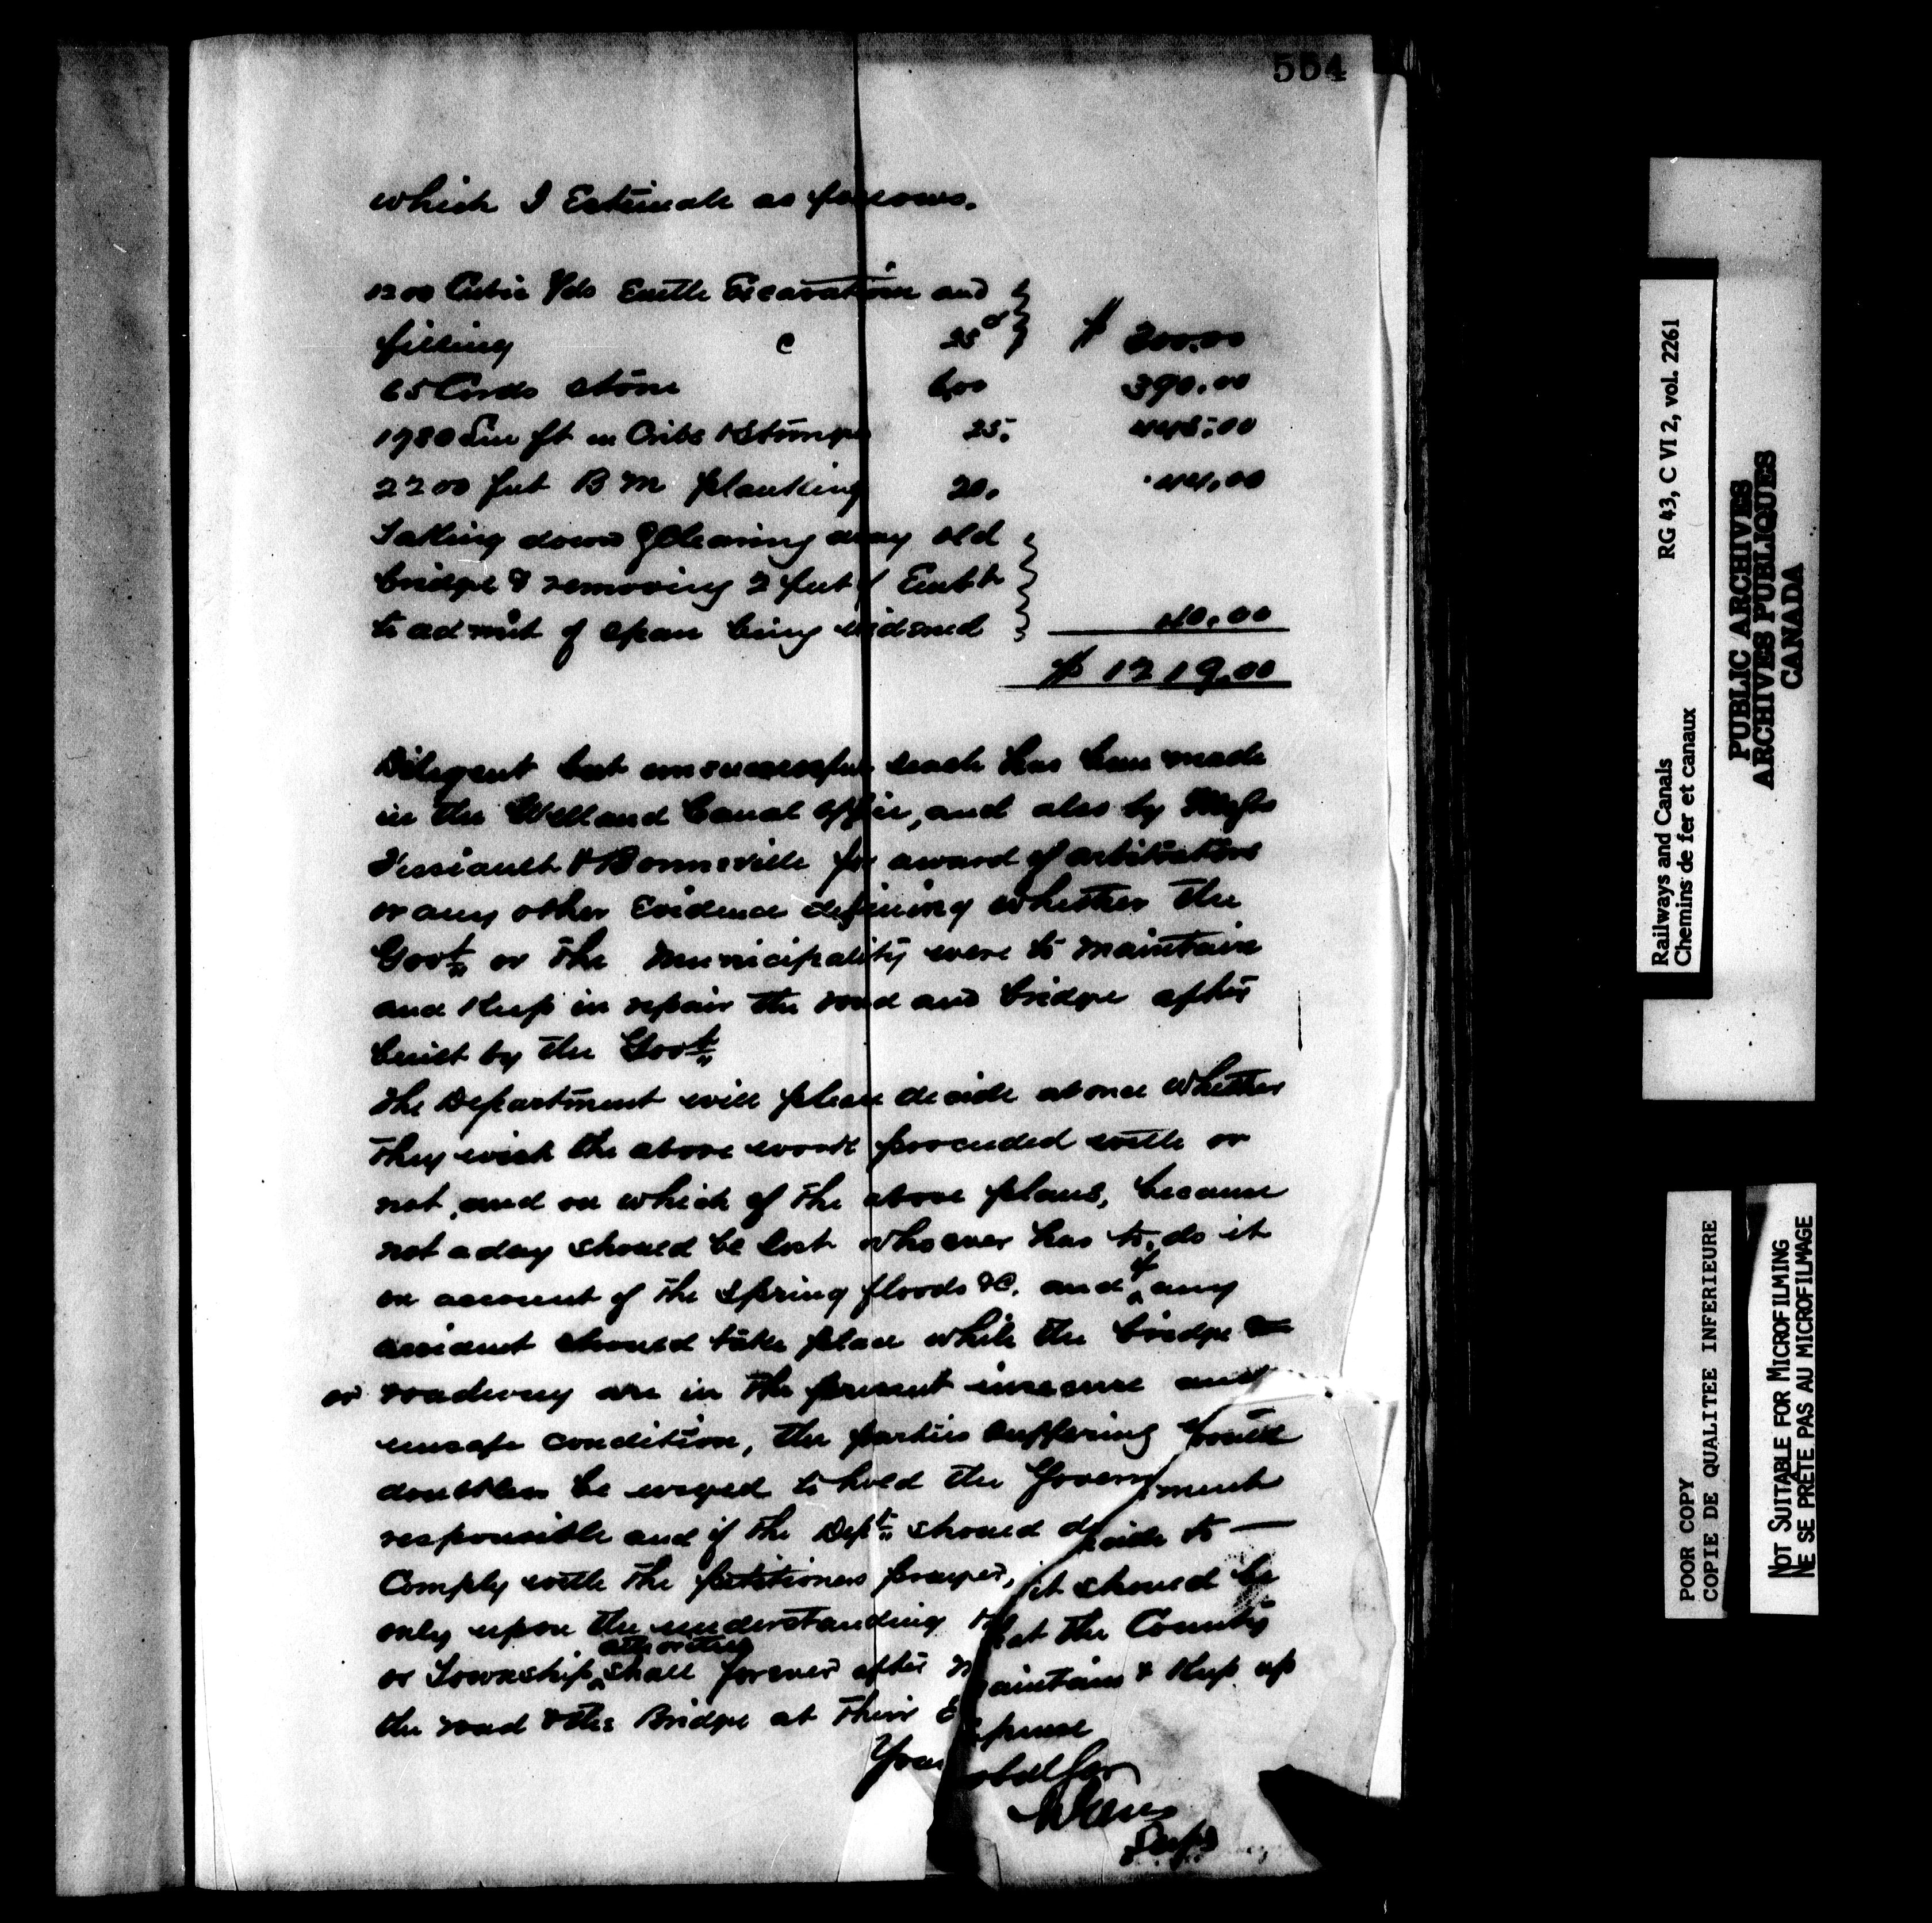 554
which I Estimate as follows.
1200 Cubic Yds Earth Excavation and
filling @ 25cts $ 300.00
65 Cords stone 6.00 390.00
1780 Lin ft in Cribs & Stringers 25. 445.00
2200 feet B M planking 20. 44.00
Taking down & Clearing away old
bridge & removing 2 feet of Earth
to admit of span being widened 40.00
$ 1219.00
Diligent but unsuccessful search has been made
in the Welland Canal office, and also by Messrs
Tessiault & Bonneville for award of arbitrators
or any other Evidence defining whether the
Govt. or the Municipality were to maintain
and Keep in repair the road and bridge after
built by the Govt.
The Department will please decide at once whether
They wish the above work proceeded with or
not, and on which of the above plans, because
not a day should be lost whoever has to do it
on account of the Spring floods &c. and if any
accident should take place while the bridge
or roadway are in the present insecure and
unsafe condition, the parties suffering would
doubtless be urged to hold the Government
responsible and if the Dept. should decide to —
Comply with the petitioners prayer, it should be
only upon the understanding that the County
or Township authorities shall forever after maintain & Keep up
the road & the Bridge at their Expense
Your obdt Ser
Supt
Railways and Canals RG 43, C VI 2, vol. 2261
Chemins de fer et canaux
PUBLIC ARCHIVES
ARCHIVES PUBLIQUES
CANADA
POOR COPY
COPIE DE QUALITEE INFERIEURE
NOT SUITABLE FOR MICROFILMING
NE SE PRÊTE PAS AU MICROFILMAGE